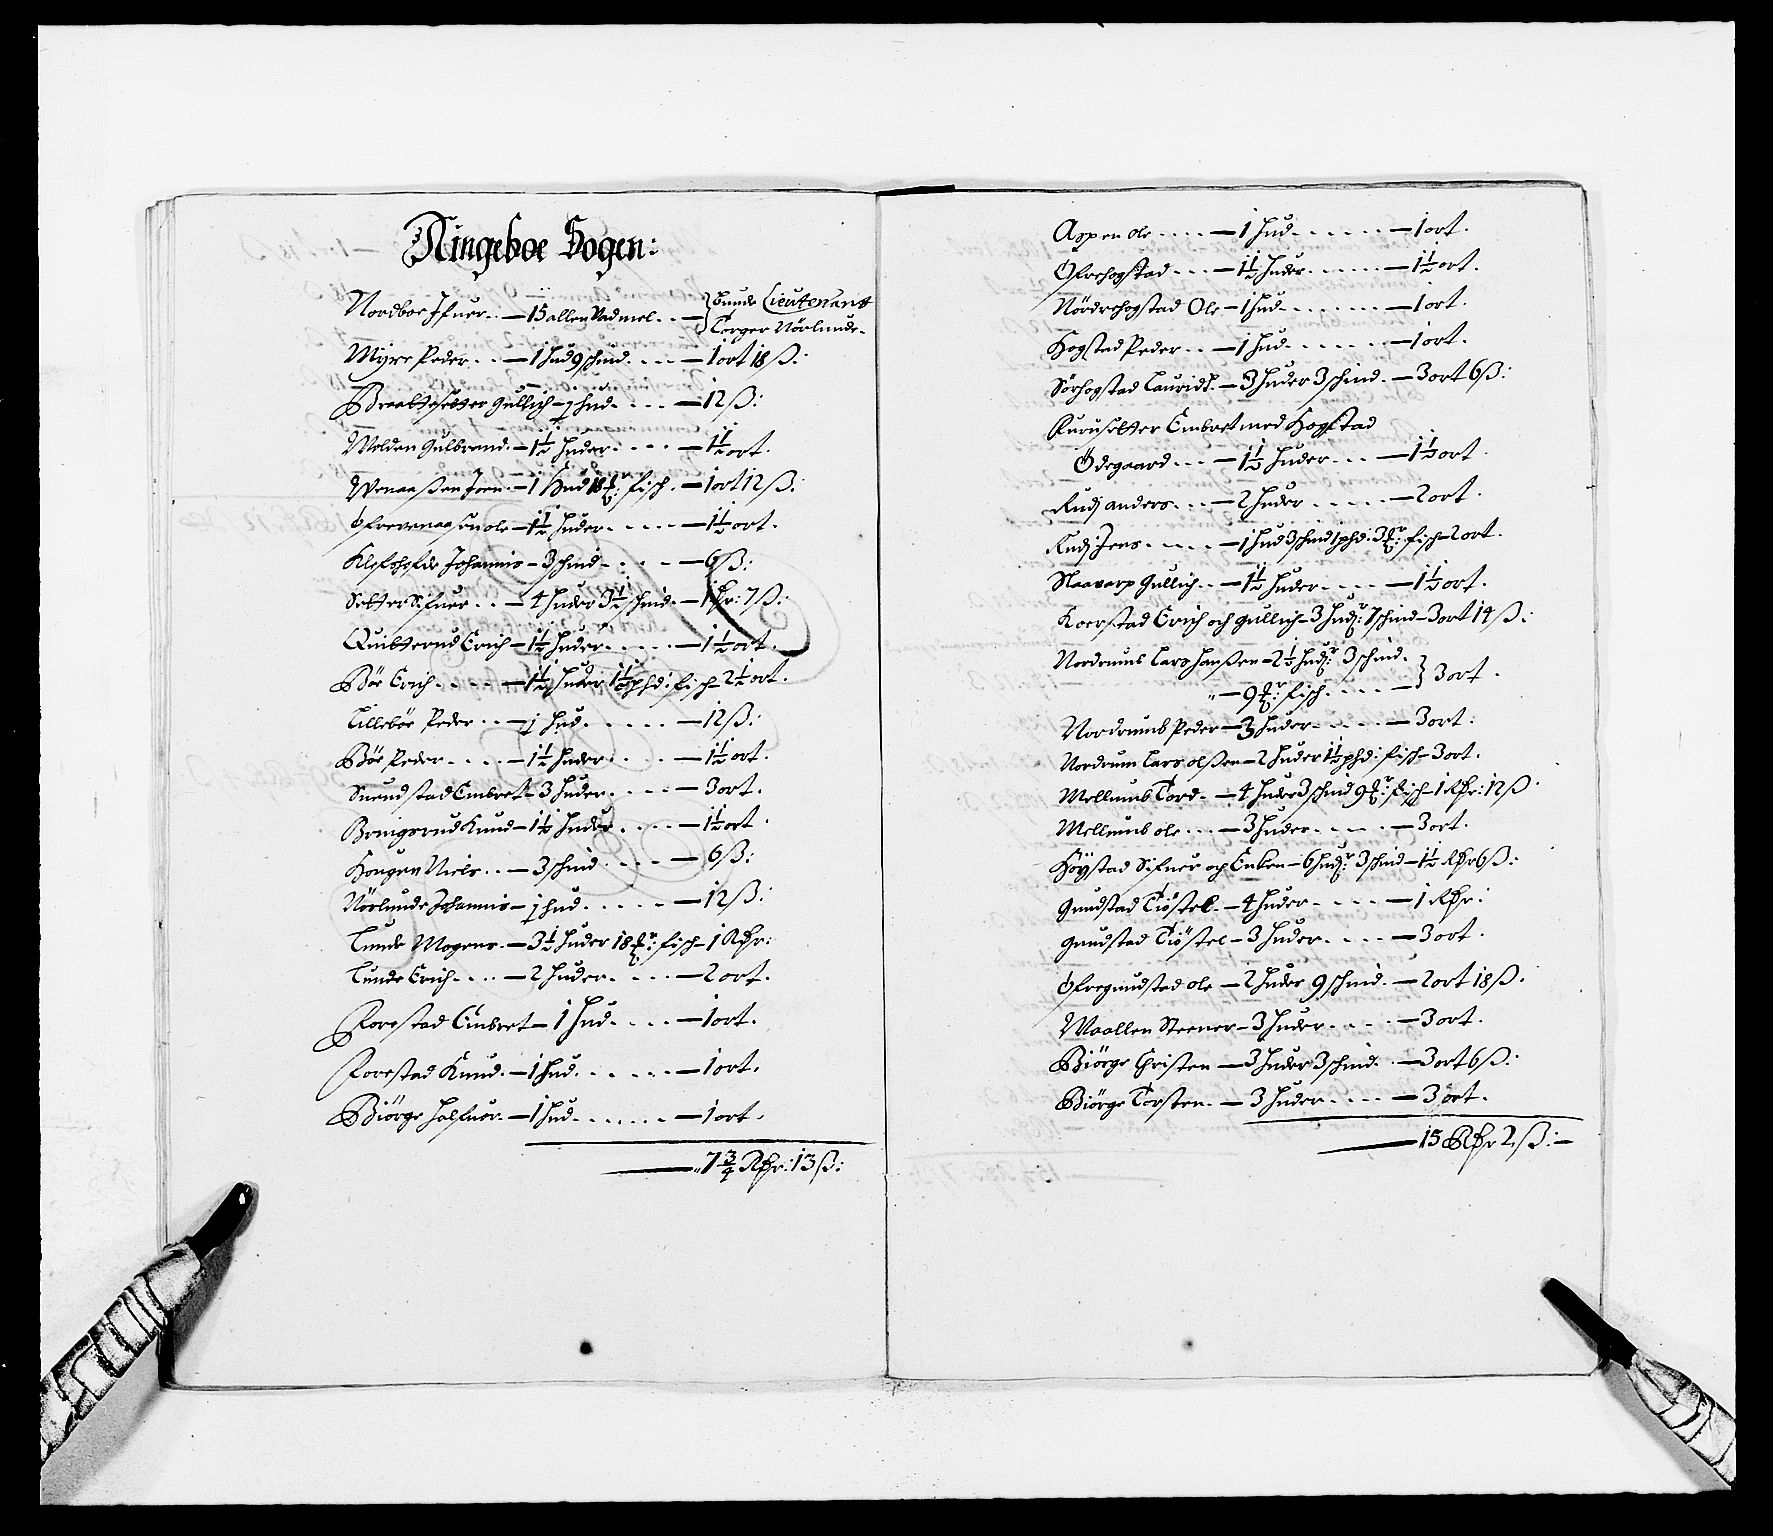 Ringeboe Sogen:
Nordboe Ifuer. . — 15 allen Vadmel. . — } Bunde Lieutenant
Törger Nörlunde.
Myre Peder. . . — 1 hud 9 schind. . . . — 1 ort 18 ß:
Braattesetter Gullich — 1 hud. . . . — 12 ß:
Molden Gulbrand. — 1½ huder. . . . — 1½ ort.
Wenaaßen Joen — 1 hud 18 fisch. — 1 ort 12 ß:
Ofrevenaasen ole — 1½ huder. . . . — 1½ ort.
Klefshofde Johannis — 3 schind. . . . — 6 ß:
Setter Sifuer . . — 4 huder 3½ schind. — 1 Rdr: 7 ß:
Quitterud Erich — 1½ huder. . . . . — 1½ ort.
Böe Erich. . . . . — 1½ huder 1½ phd: fisch — 2½ ort.
Lilleböe Peder . . — 1 hud. . . . . . — 12 ß:
Böe Peder. . . . . — 1½ huder. . . . — 1½ ort.
Suendstad Embret — 3 huder. . . . . — 3 ort.
Bringsrud Knud — 1½ huder. . . . — 1½ ort.
Hougen Niels. . . — 3 schind. . . . . — 6 ß:
Nörlunde Johannis — 1 hud. . . . . . — 12 ß:
Lunde Mogens. — 3½ huder 18 fisch — 1 Rdr:
Lunde Erich. . . . — 2 huder. . . . . — 2 ort.
Forestad Embret — 1 hud. . . . . — 1 ort.
Forestad Knud. — 1 hud. . . . . . — 1 ort.
Biörge halfuor. — 1 hud. . . . . . — 1 ort.
— 7¾ Rdr: 13 ß:
Aspen ole. . . . . — 1 hud. . . . . . — 1 ort.
Ofrehogstad. . . . — 1½ huder. . . . . — 1½ ort.
Nördrehogstad Ole — 1 hud. . . . . . . — 1 ort.
Hogstad Peder. . . — 1 hud. . . . . . — 1 ort.
Sörhogstad Lauridt. — 3 huder 3 schind. — 3 ort 6 ß:
Ruruszetter Embret med Hogstad
Ödegaard. . . . — 1½ huder. . . . — 1½ ort.
Rudj anders. . . . — 2 huder. . . . . — 2 ort.
Rudj Jens. . . . . — 1 hud 3 schind 1 phd: 3 fisch — 2 ort.
Naavarp Gullich. . . — 1½ huder. . . . — 1½ ort.
Koerstad Erich och gullich — 3 hudr: 7 schind — 3 ort 14 ß:
Nordrumb Lars Hanßen — 2½ hudr: 3 schind.
„ — 9 fisch. . . . . — } 3 ort.
Nordrumb Peder — 3 huder. . . . . — 3 ort.
Nordrum Lars olßen — 2 huder 1½ phd: fisch — 3 ort.
Mellumb Tord. . — 4 huder 3 schind 9 fisch — 1 Rdr: 12 ß.
Mellumb ole. . . . — 3 huder. . . . . — 3 ort.
Höystad Sifuer och Enken — 6 hudr: 3 schind — 1½ Rdr 6 ß:
Gundstad Tiöstel. — 4 huder. . . . . — 1 Rdr:
Gundstad Tiöstel — 3 huder. . . . . — 3 ort.
Ofregundstad ole — 2 huder 9 schind. — 2 ort 18 ß.
Waallen Steener — 3 huder. . . . . — 3 ort.
Biörge Christen — 3 huder 3 schind. . — 3 ort 6 ß:
Biörge Torsten. — 3 huder. . . . . — 3 ort.
— 15 Rdr 2 ß: —